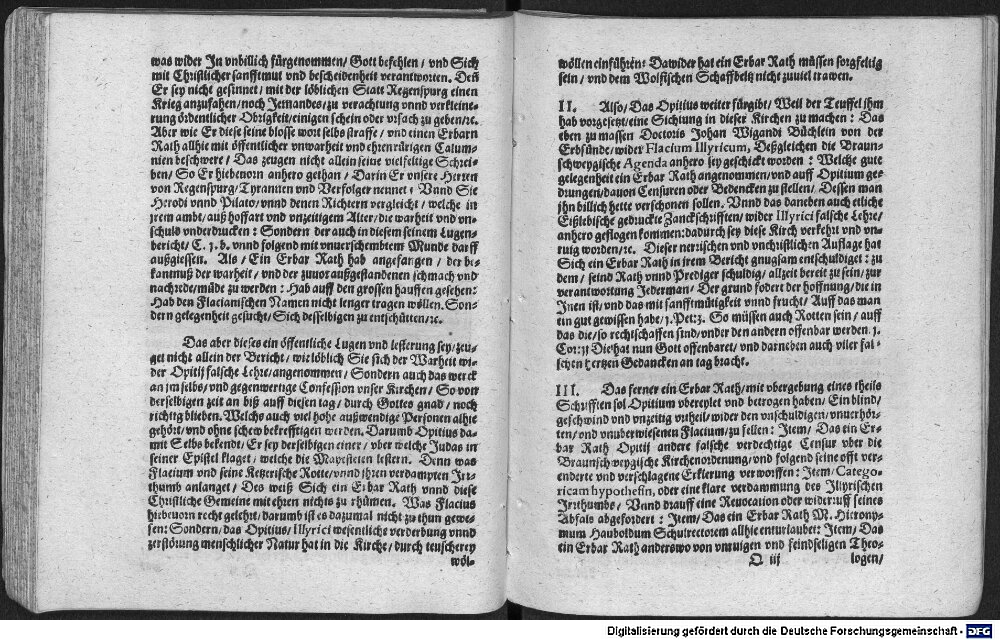 was wider In vnbillich fürgenommen/ Gott befehlen / vnd Sich
mit Christlicher sanfftmut vnd bescheidenheit verantworten. Deñ
Er sey nicht gesinnet/ mit der löblichen Statt Regenspurg einen
Krieg anzufahen/ noch Jemandes/ zu verachtung vnnd verkleine-
rung ördentlicher Obrigkeit/ einigen schein oder vrsach zu geben/ ꝛc.
Aber wie Er diese seine blosse wort selbs straffe/ vnd einen Erbarn
Rath allhie mit öffentlicher vnwarheit vnd ehrenrürigen Calum-
nien beschwere / Das zeugen nicht allein seine vielfeltige Schrei-
ben/ So Er hiebeuorn anhero gethan / Darin Er vnsere Herren
von Regenspurg/ Tyrannen vnd Verfolger nennet / Vnnd Sie
Herodi vnnd Pilato/ vnnd denen Richtern vergleicht / welche in
jrem ambt/ auß hoffart vnd vnzeitigem Alter/ die warheit vnd vn-
schuld vnderdrucken : Sondern der auch in diesem seinem Lugen-
bericht/ C. 3. b. vnnd folgend mit vnuerschembtem Munde darff
außgiessen. Als / Ein Erbar Rath hab angefangen / der be-
kanntnuß der warheit / vnd der zuuor außgestandenen schmach vnd
nachrede/ müde zu werden : Hab auff den grossen hauffen gesehen:
Hab den Flacianischen Namen nicht lenger tragen wöllen. Son-
dern gelegenheit gesucht/ Sich desselbigen zu entschütten/ ꝛc.
Das aber dieses ein öffentliche Lugen vnd lesterung sey/ zeu-
get nicht allein der Bericht/ wie löblich Sie sich der Warheit wi-
der Opitij falsche Lehre/ angenommen / Sondern auch das werck
an jm selbs/ vnd gegenwertige Confession vnser Kirchen/ So von
derselbigen zeit an biß auff diesen tag / durch Gottes gnad / noch
richtig blieben. Welchs auch viel hohe außwendige Personen alhie
gehört/ vnd ohne schew bekrefftigen werden. Darumb Opitius da-
mit Selbs bekendt/ Er sey derselbigen einer / vber welche Judas in
seiner Epistel klaget / welche die Mayesteten lestern. Denn was
Flacium vnd seine Ketzerische Rotte/ vnnd jhren verdampten Irr-
thumb anlanget / Des weiß Sich ein Erbar Rath vnnd diese
Christliche Gemeine mit ehren nichts zu rhümen. Was Flacius
hiebeuorn recht gelehrt/ darumb ist es dazumal nicht zu thun gewe-
sen: Sondern/ das Opitius/ Illyrici wesentliche verderbung vnnd
zerstörung menschlicher Natur hat in die Kirche/ durch teuscherey
wöl-
wöllen einführen: Dawider hat ein Erbar Rath müssen sorgfeltig
sein / vnd dem Wolfischen Schaffbeltz nicht zuuiel trawen.
II. Also/ Das Opitius weiter fürgibt/ Weil der Teuffel jhm
hab vorgesetzt/ eine Sichtung in dieser Kirchen zu machen : Das
eben zu massen Doctoris Johan Wigandi Büchlein von der
Erbsünde/ wider Flacium Illyricum, Deßgleichen die Braun-
schweygische Agenda anhero sey geschickt worden : Welche gute
gelegenheit ein Erbar Rath angenommen/ vnd auff Opitium ge-
drungen/ dauon Censuren oder Bedencken zu stellen/ Dessen man
jhn billich hette verschonen sollen. Vnnd das daneben auch etliche
Eißlebische gedruckte Zanckschrifften/ wider Illyrici falsche Lehre/
anhero geflogen kommen: dadurch sey diese Kirch verkehrt vnd vn-
ruig worden/ ꝛc. Dieser nerrischen vnd vnchristlichen Auflage hat
Sich ein Erbar Rath in jrem Bericht gnugsam entschuldiget : zu
dem / seind Rath vnnd Prediger schuldig/ allzeit bereit zu sein/ zur
verantwortung Jederman/ Der grund fodert der hoffnung/ die in
Jnen ist/ vnd das mit sanfftmütigkeit vnnd frucht/ Auff das man
ein gut gewissen habe/ 1. Pet: 3. So müssen auch Rotten sein / auff
das die/ so rechtschaffen sind/ vnder den andern offenbar werden. 1.
Cor: 11 Die hat nun Gott offenbaret/ vnd darneben auch viler fal-
schen hertzen Gedancken an tag bracht.
III. Das ferner ein Erbar Rath/ mit vbergebung eines theils
Schrifften sol Opitium vbereylet vnd betrogen haben/ Ein blind/
geschwind vnd vnzeitig vrtheil/ wider den vnschuldigen/ vnuerhör-
ten/ vnd vnuberwiesenen Flacium/ zu fellen : Item/ Das ein Er-
bar Rath Opitij andere falsche verdechtige Censur vber die
Braunschweygische Kirchenordenung/ vnd folgend seine offt ver-
enderte vnd verschlagene Erklerung verworffen : Item/ Catego-
ricam hypothesin, oder eine klare verdammung des Illyrischen
Irrthumbs / Vnnd drauff eine Reuocation oder widerruff seines
Abfals abgefordert : Item/ Das ein Erbar Rath M. Hierony-
mum Hauboldum Schulrectorem allhie enturlaubet: Item/ Das
ein Erbar Rath anderswo von vnruigen vnd feindseligen Theo-
O iij logen/
Digitalisierung gefördert durch die Deutsche Forschungsgemeinschaft - DFG